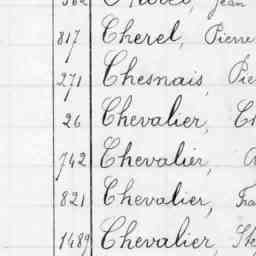 817 Cherel, Pierre
271 Chesnais, Pie
26 Chevalier,
742 Chevalier,
821 Chevalier, Fra
1489 Chevalier, Ste